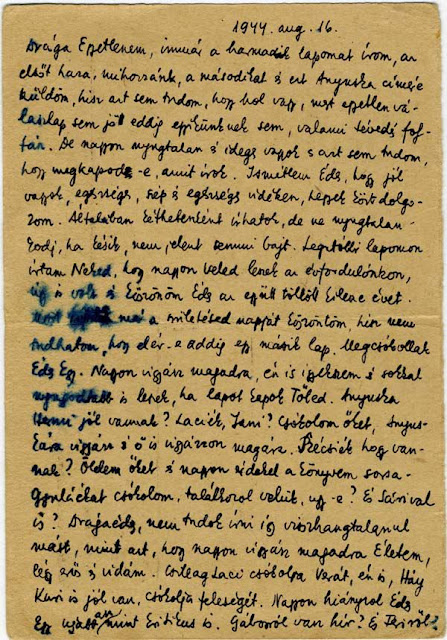 1944. aug. 16.
Drága Egyetlenem, immár a harmadik lapomat írom, az
elsőt haza, mihozzánk, a másodikat s ezt Anyuska címére
küldöm, hisz azt sem tudom, hogy hol vagy, mert egyetlen vá-
laszlap sem jött eddig egyikünknek sem, valami tévedés foly-
tán. De nagyon nyugtalan s ideges vagyok s azt sem tudom,
hogy megkapod-e, amit írok. Ismétlem Édes, hogy jól
vagyok, egészséges, szép és egészséges vidéken, hegyek közt dolgo-
zom. Általában kéthetenként írhatok, de ne nyugtalan-
kodj, ha késik, nem jelent semmi bajt. Legutóbbi lapomon
írtam Neked, hogy nagyon Veled leszek az évfordulónkon,
úgy is volt s köszönöm Édes az együtt töltött kilenc évet.
Most már a születésed napját köszöntöm, hisz nem
tudhatom, hogy elér-e addig egy másik lap. Megcsókollak
Édes Egy. Nagyon vigyázz magadra, én is igyekszem s sokkal
nyugodtabb is leszek, ha lapot kapok Tőled. Anyuska
jól vannak? Laciék, Jani? Csókolom őket, Anyus-
kára vigyázz s ő is vigyázzon magára. Pécsiék hogy van-
nak? Ölelem őket s nagyon érdekel a könyvem sorsa.
Gyuláékat csókolom, találkozol velük, ugy-e? És Sárival
is? Drágaédes, nem tudok írni így visszhangtalanul
mást, mint azt, hogy nagyon vigyázz magadra Életem,
légy erős s vidám. Csillag Laci csókolja Verát, én is, Háy
Kari is jól van, csókolja feleségét. Nagyon hiányzol Édes
Egy mint kritikus is. Gáborról van hír? És Teriről?